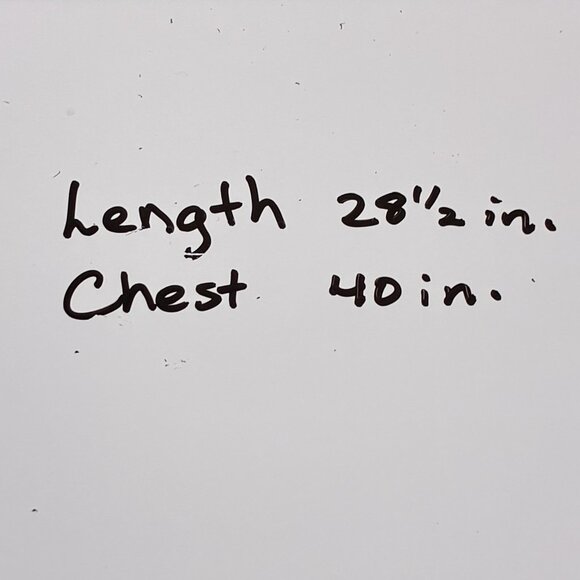 Length 28 1/2 in.
Chest 40 in.